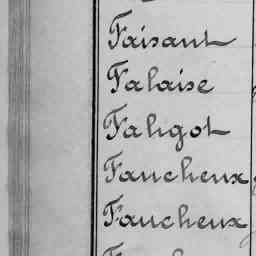 Faisant
Falaise
Faligot
Faucheux
Faucheux